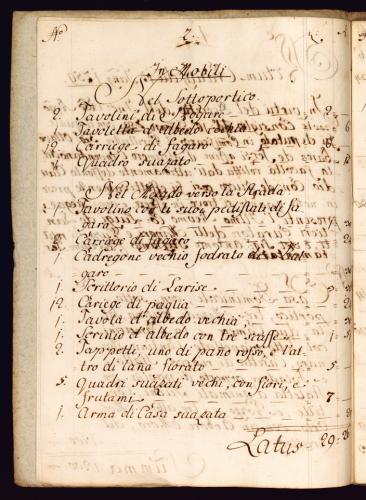 No 2
In Mobili
Nel Sottoportico
2. Tavolini di Fogaro 2
Tavoletta d'albedo vechia 6
Cariege di fagaro
1. Quadro suazato
Nel Mezado verso la Strada
1. Tavolino con li suoi pedistali di fa
garo
5. Cariege di fagaro
1. Cadregone vechio fodrato di
garo
1. Scrittorio di Larise
12. Cariege di paglia
1. Tavola d'albedo vechia
1. Scrinio d'albedo con tre scaffe 1
2. Tappetti, uno di pano rosso, e l'al
tro di lana fiorato
5. Quadri suazati vechi, con fiori, e
frutami 7
1. Arma di Casa suazata
Latus 29 26